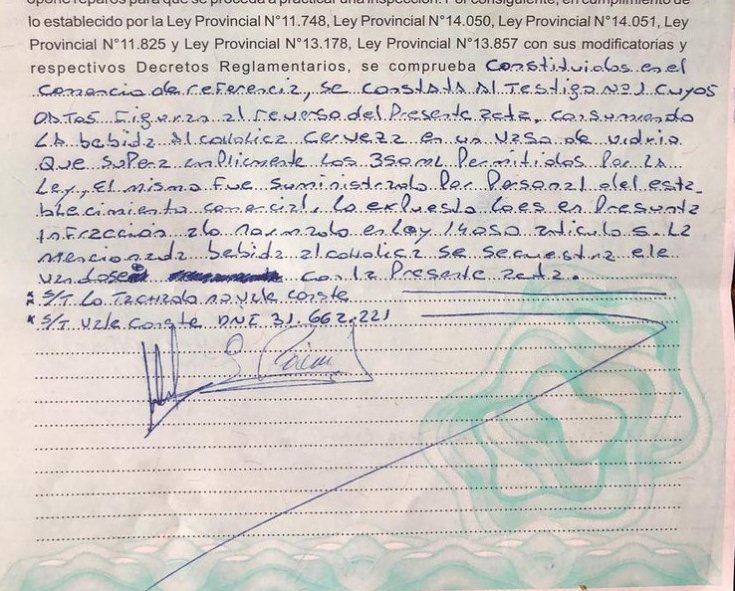 opone reparos para que se proceda a practicar una inspección. Por consiguiente, en cumplimiento de
lo establecido por la Ley Provincial N°11.748, Ley Provincial N°14.050, Ley Provincial N°14.051, Ley
Provincial N°11.825 y Ley Provincial N°13.178, Ley Provincial N°13.857 con sus modificatorias y
respectivos Decretos Reglamentarios, se comprueba Constituidos en el
comercio de referencia, se constata al Testigo Nº1 cuyos
datos Figuran al reverso del Presente acta, consumiendo
la bebida alcoholica cerveza en un vaso de vidrio
que supera ampliamente los 350ml Permitidos Por la
Ley, el mismo fue suministrado Por Personal del esta_
blecimiento comercial, lo expuesto lo es en Presunta
infraccion a lo normado en Ley 14050 articulo 5. La
mencionada bebida alcoholica se secuestra ele
vandose con la Presente acta.
* S/T Lo Tachado no vale conste
* S/T vale conste DNI 31.662.221